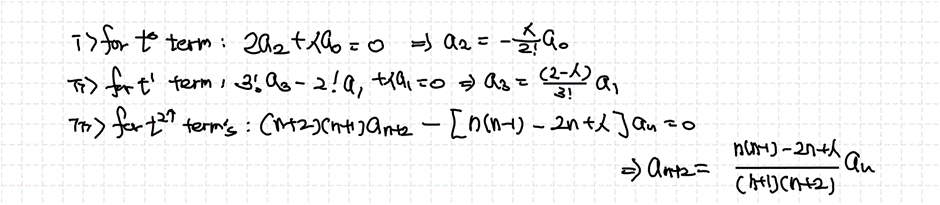 i> for t⁰ term : 2a₂ + λa₀ = 0 ⇒ a₂ = -λ/2! a₀
ii> for t¹ term, 3!a₃ - 2!a₁ + λa₁ = 0 ⇒ a₃ = (2-λ)/3! a₁
iii> for t²↑ term's : (n+2)(n+1)aₙ₊₂ - [n(n-1) - 2n + λ]aₙ = 0
⇒ aₙ₊₂ = n(n-1) - 2n + λ / (n+1)(n+2) aₙ